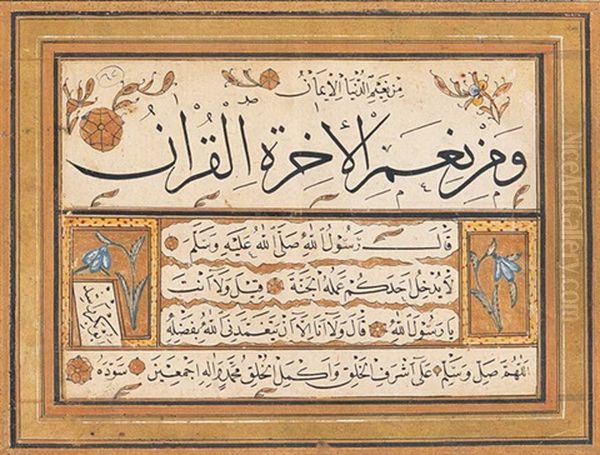 من نعيم الدنيا الإيمان
ومن نعم الأخرة القرآن
قال رسول الله صلى الله عليه وسلم
لا يدخل احدكم عمله الجنة قيل ولا أنت
يا رسول الله قال ولا أنا إلا أن يتغمدني الله بفضله
اللهم صل وسلم على أشرف الخلق وأكمل الخلق محمد وآله اجمعين سوده
NiceArtGallery.com